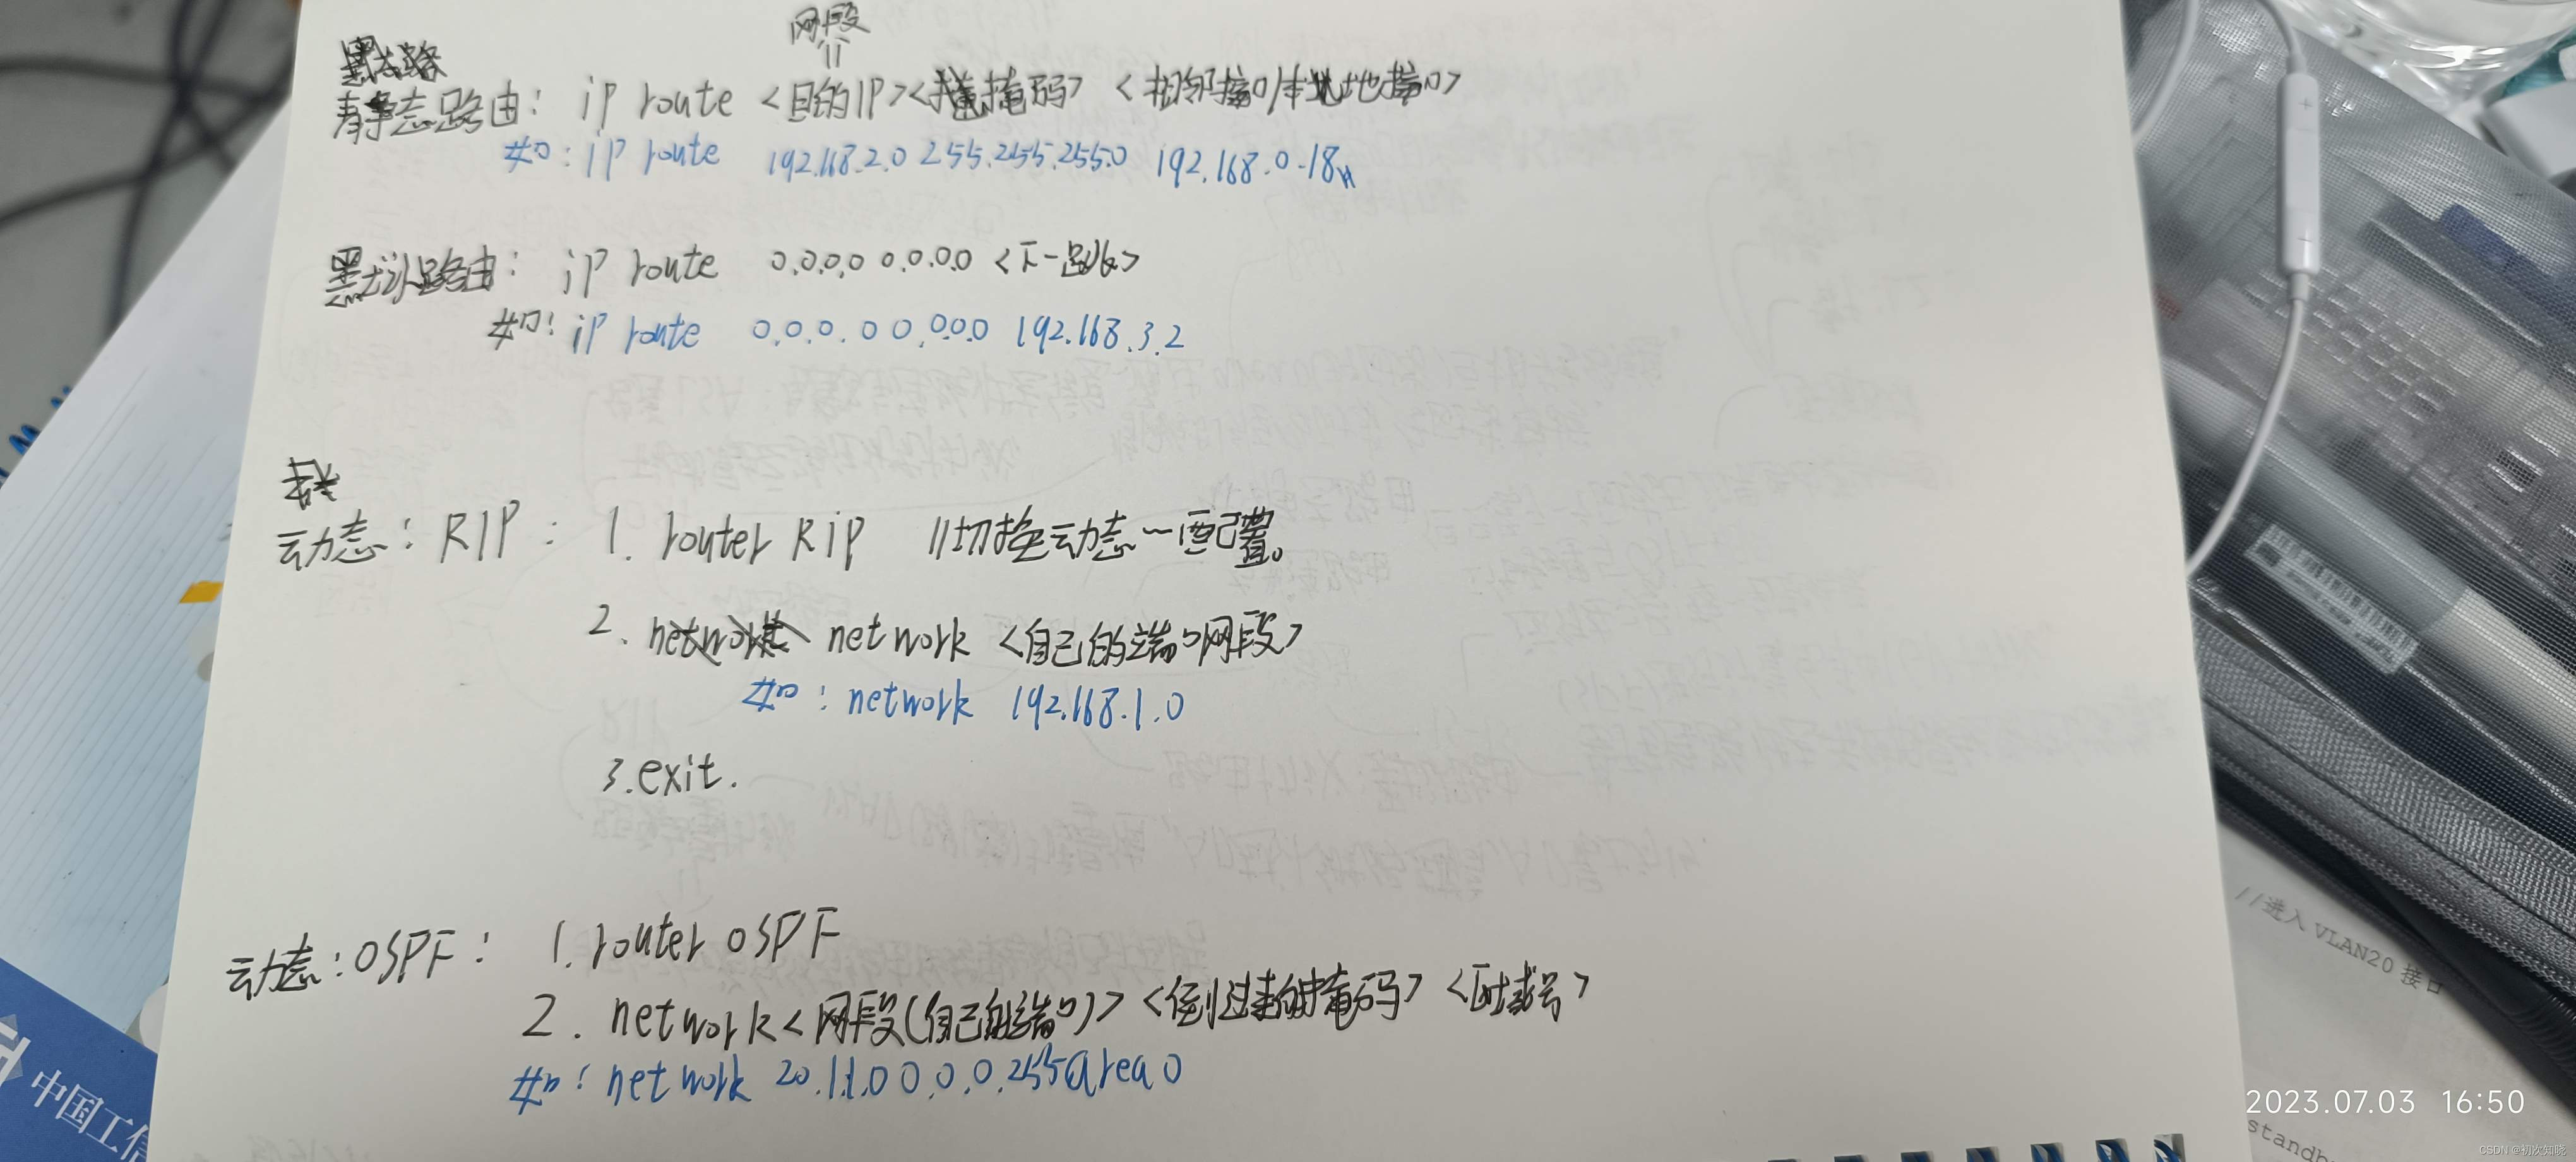 网段
静态路由: ip route <目的IP><掩码> <相邻接口/本地接口>
如: ip route 192.168.2.0 255.255.255.0 192.168.0.18
默认路由: ip route 0.0.0.0 0.0.0.0 <下一跳>
如: ip route 0.0.0.0 0.0.0.0 192.168.3.2
动态: RIP: 1. router Rip //切换动态~配置。
2. network <自己的端口网段>
如: network 192.168.1.0
3.exit.
动态:OSPF: 1.router OSPF
2. network<网段(自己的端口)> <倒过来的掩码> <区域号>
如: network 20.1.1.0 0.0.0.255 area 0
//进入 VLAN20 接口
中国工信
2023.07.03 16:50
standb
CSDN @初次知晓